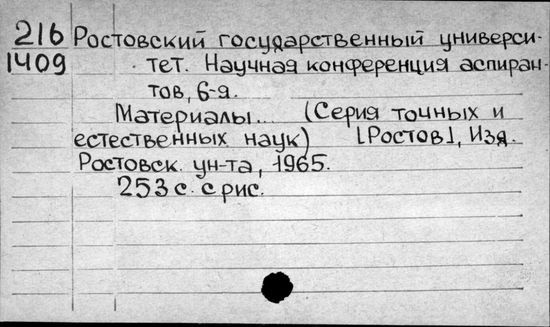 216 Ростовский государственный универси-
1409 тет. Научная конференция аспиран-
тов, 6-я.
Материалы... (Серия точных и
естественных наук) [Ростов], Изд.
Ростовск. ун-та, 1965.
253 с. с рис.